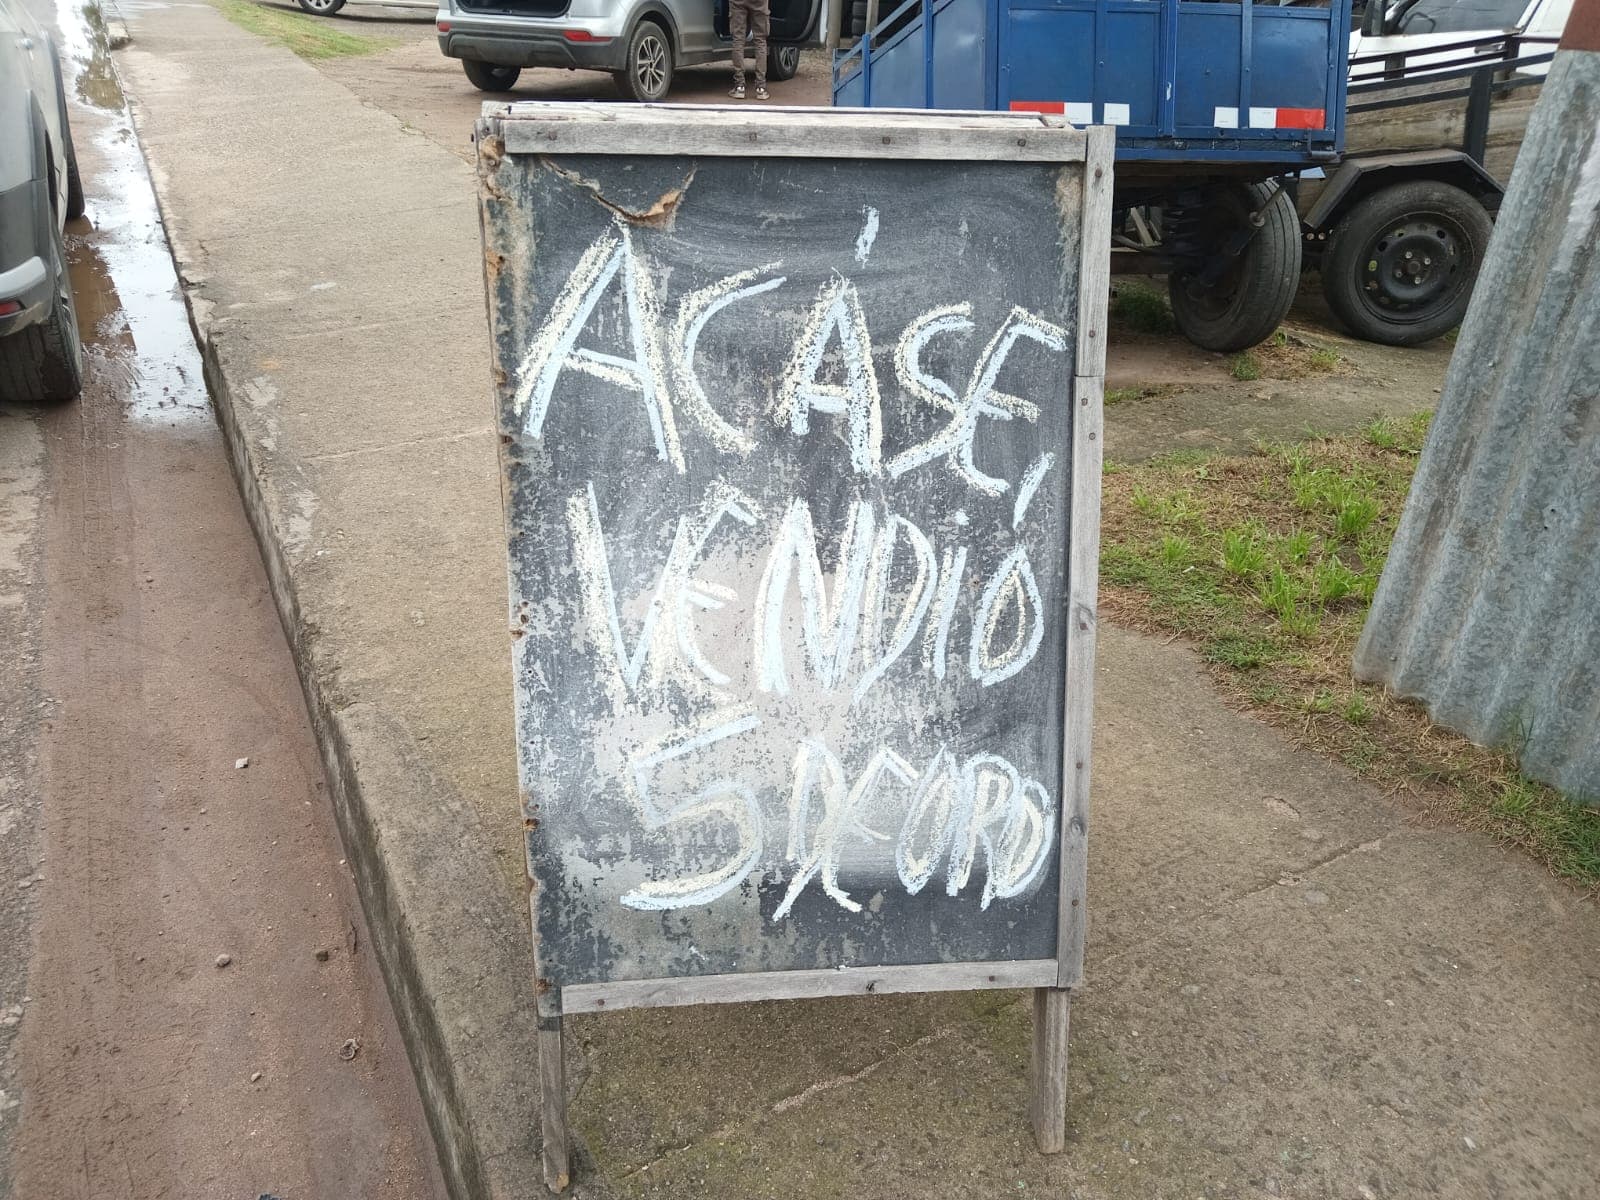 ACÁSE,
VENDIÓ
5 DE ORO